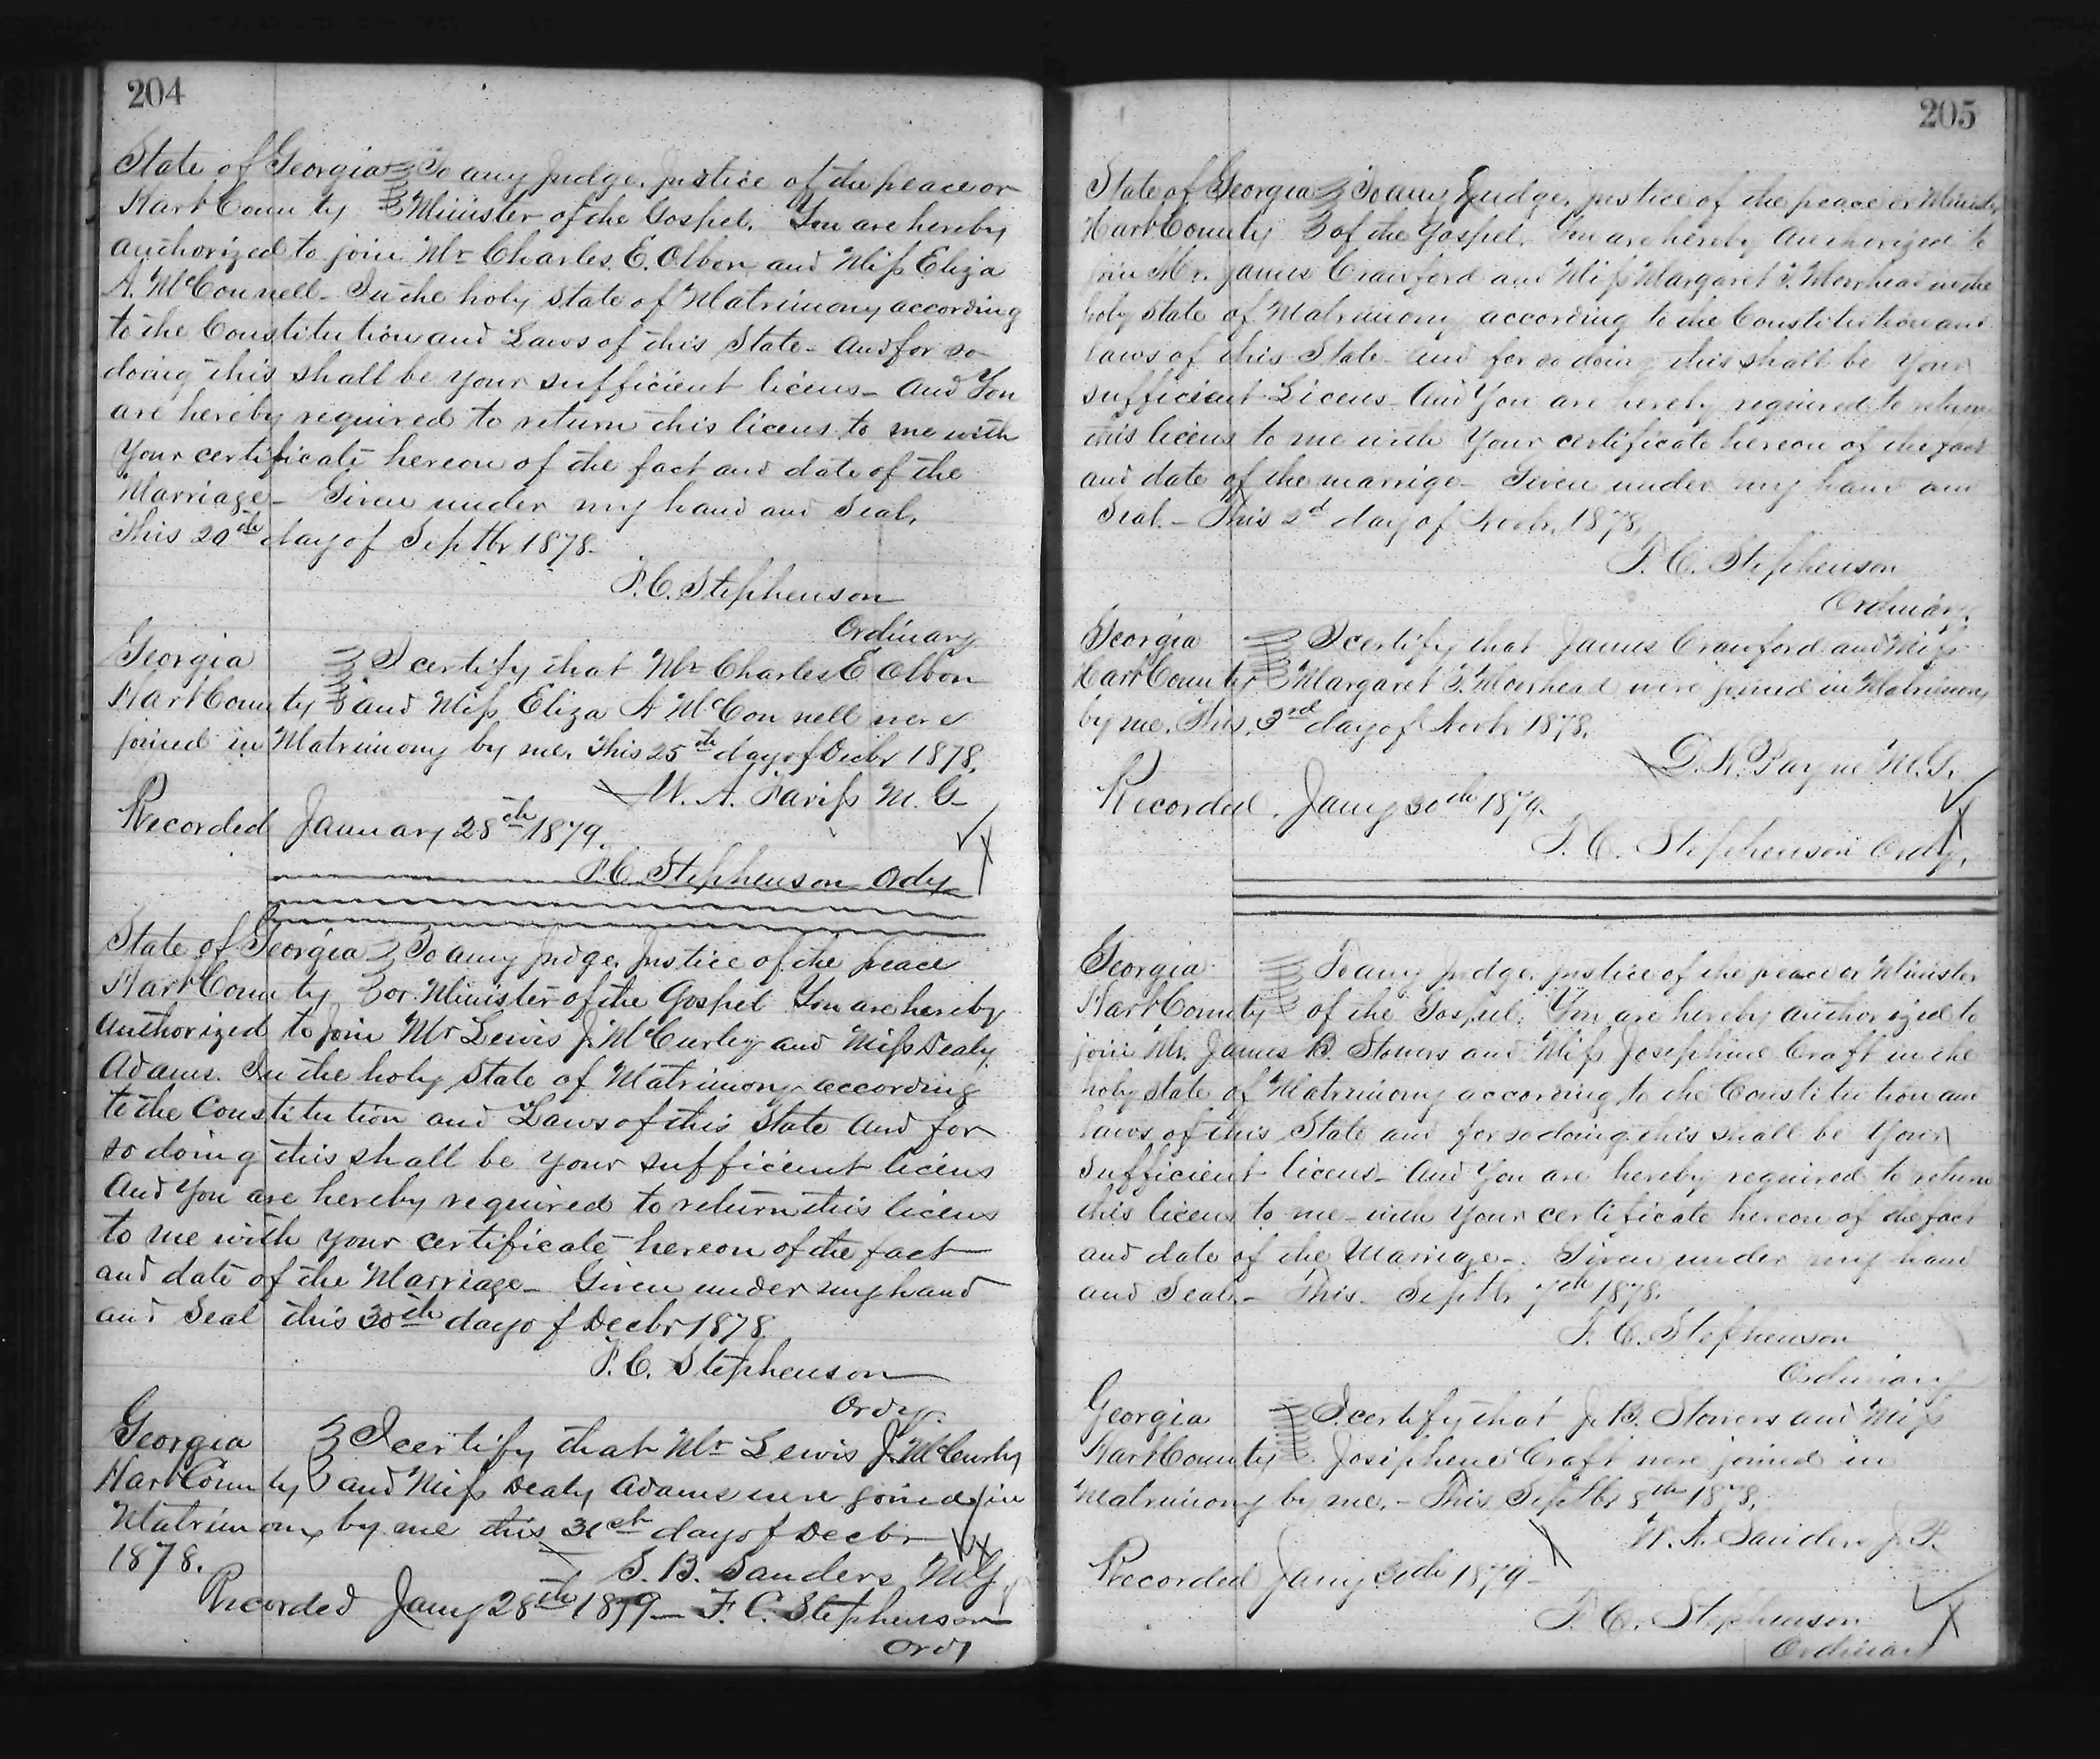 204
State of Georgia To any Judge, Justice of the peace or
Hart County Minister of the Gospel. You are hereby
authorized to join Mr Charles E. Olbon and Miss Eliza
A. McConnell - In the holy State of Matrimony according
to the Constitution and Laws of this State - And for so
doing this shall be your sufficient licens - And You
are hereby required to return this licens to me with
Your certificate hereon of the fact and date of the
Marriage - Given under my hand and Seal,
This 20th day of Septbr 1878 -
F. C. Stephenson
Ordinary
Georgia I certify that Mr Charles E Olbon
Hart County and Miss Eliza A McConnell were
joined in Matrimony by me. This 25th day of Decbr 1878.
W. A. Fariss M. G
Recorded January 28th 1879.
F. C. Stephenson Ordy
State of Georgia To any Judge, Justice of the peace
Hart County or Minister of the Gospel You are hereby
authorized to join Mr Lewis J. McCurley and Miss Dealy
Adams. In the holy State of Matrimony according
to the Constitution and Laws of this State And for
so doing this shall be your sufficient licens
And You are hereby required to return this licens
to me with your certificate hereon of the fact
and date of the Marriage - Given under my hand
and Seal this 30th day of Decbr 1878.
F. C. Stephenson
Ordy.
Georgia I certify that Mr Lewis J. McCurly
Hart County and Miss Dealy Adams were joined in
Matrimony by me this 31st day of Decbr
1878. S. B. Sanders M.G.
Recorded Jany 28th 1879 - F. C. Stephenson
Ordy
205
State of Georgia To any Judge, Justice of the peace or Minister
Hart County of the Gospel. You are hereby authorized to
join Mr. James Crawford and Miss Margaret T. Moorhead in the
holy State of Matrimony according to the Constitution and
laws of this State - And for so doing this shall be your
sufficient Licens - And You are hereby required to return
this licens to me with Your certificate hereon of the fact
and date of the marrige - Given under my hand and
Seal. - This 2d day of Novbr. 1878,
F. C. Stephenson
Ordinary.
Georgia I certify that James Crawford and Miss
Hart County Margaret T. Moorhead were joined in Matrimony
by me. This, 3rd day of Novbr 1878.
Payne M.G.
Recorded. Jany 30th 1879.
F. C. Stephenson Ordy,
Georgia To any Judge, justice of the peace or Minister
Hart County of the Gospel. You are hereby authorized to
join Mr. James B. Stowers and Miss Josephine Craft in the
holy state of Matrimony according to the Constitution and
laws of this State and for so doing this shall be Your
sufficient licens - And You are hereby required to return
this licens to me - with Your certificate hereon of the fact
and date of the Marriage -. Given under my hand
and Seal. - This. Septbr 7th 1878.
F. C. Stephenson
Ordinary
Georgia I certify that J. B. Stowers and Miss
Hart County Josephene Craft were joined in
Matrimony by me. - This Septbr 8th 1878.
W. A. Sanders J. P.
Recorded Jany 30th 1879 -
F. C. Stephenson
Ordinary